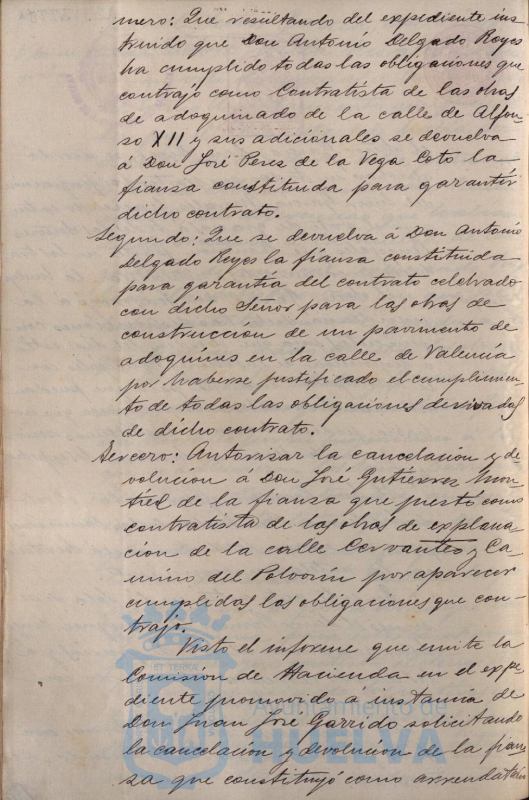 mero: Que resultando del expediente ins
truido que Don Antonio Delgado Reyes
ha cumplido todas las obligaciones que
contrajo como Contratista de las obras
de adoquinado de la calle de Alfon-
so XII y sus adicionales se devuelva
á Don José Perez de la Vega Coto la
fianza constituida para garantir
dicho contrato.
Segundo: Que se devuelva á Don Antonio
Delgado Reyes la fianza constituida
para garantía del contrato celebrado
con dicho Señor para las obras de
construcción de un pavimento de
adoquines en la calle de Valencia
por haberse justificado el cumplimien-
to de todas las obligaciones derivadas
de dicho contrato.
Tercero: Autorizar la cancelación y de
volución á Don José Gutierrez
de la fianza que prestó como
contratista de las obras de explana-
ción de la calle Cervantes y Ca-
mino del Polvorín por aparecer
cumplidas las obligaciones que con-
trajo.
Visto el informe que emite la
Comisión de Hacienda en el expe-
diente promovido á instancia de
Don Juan José Garrido solicitando
la cancelación y devolución de la fian
za que constituyó como arrendatario
Ayuntamiento de
HUELVA